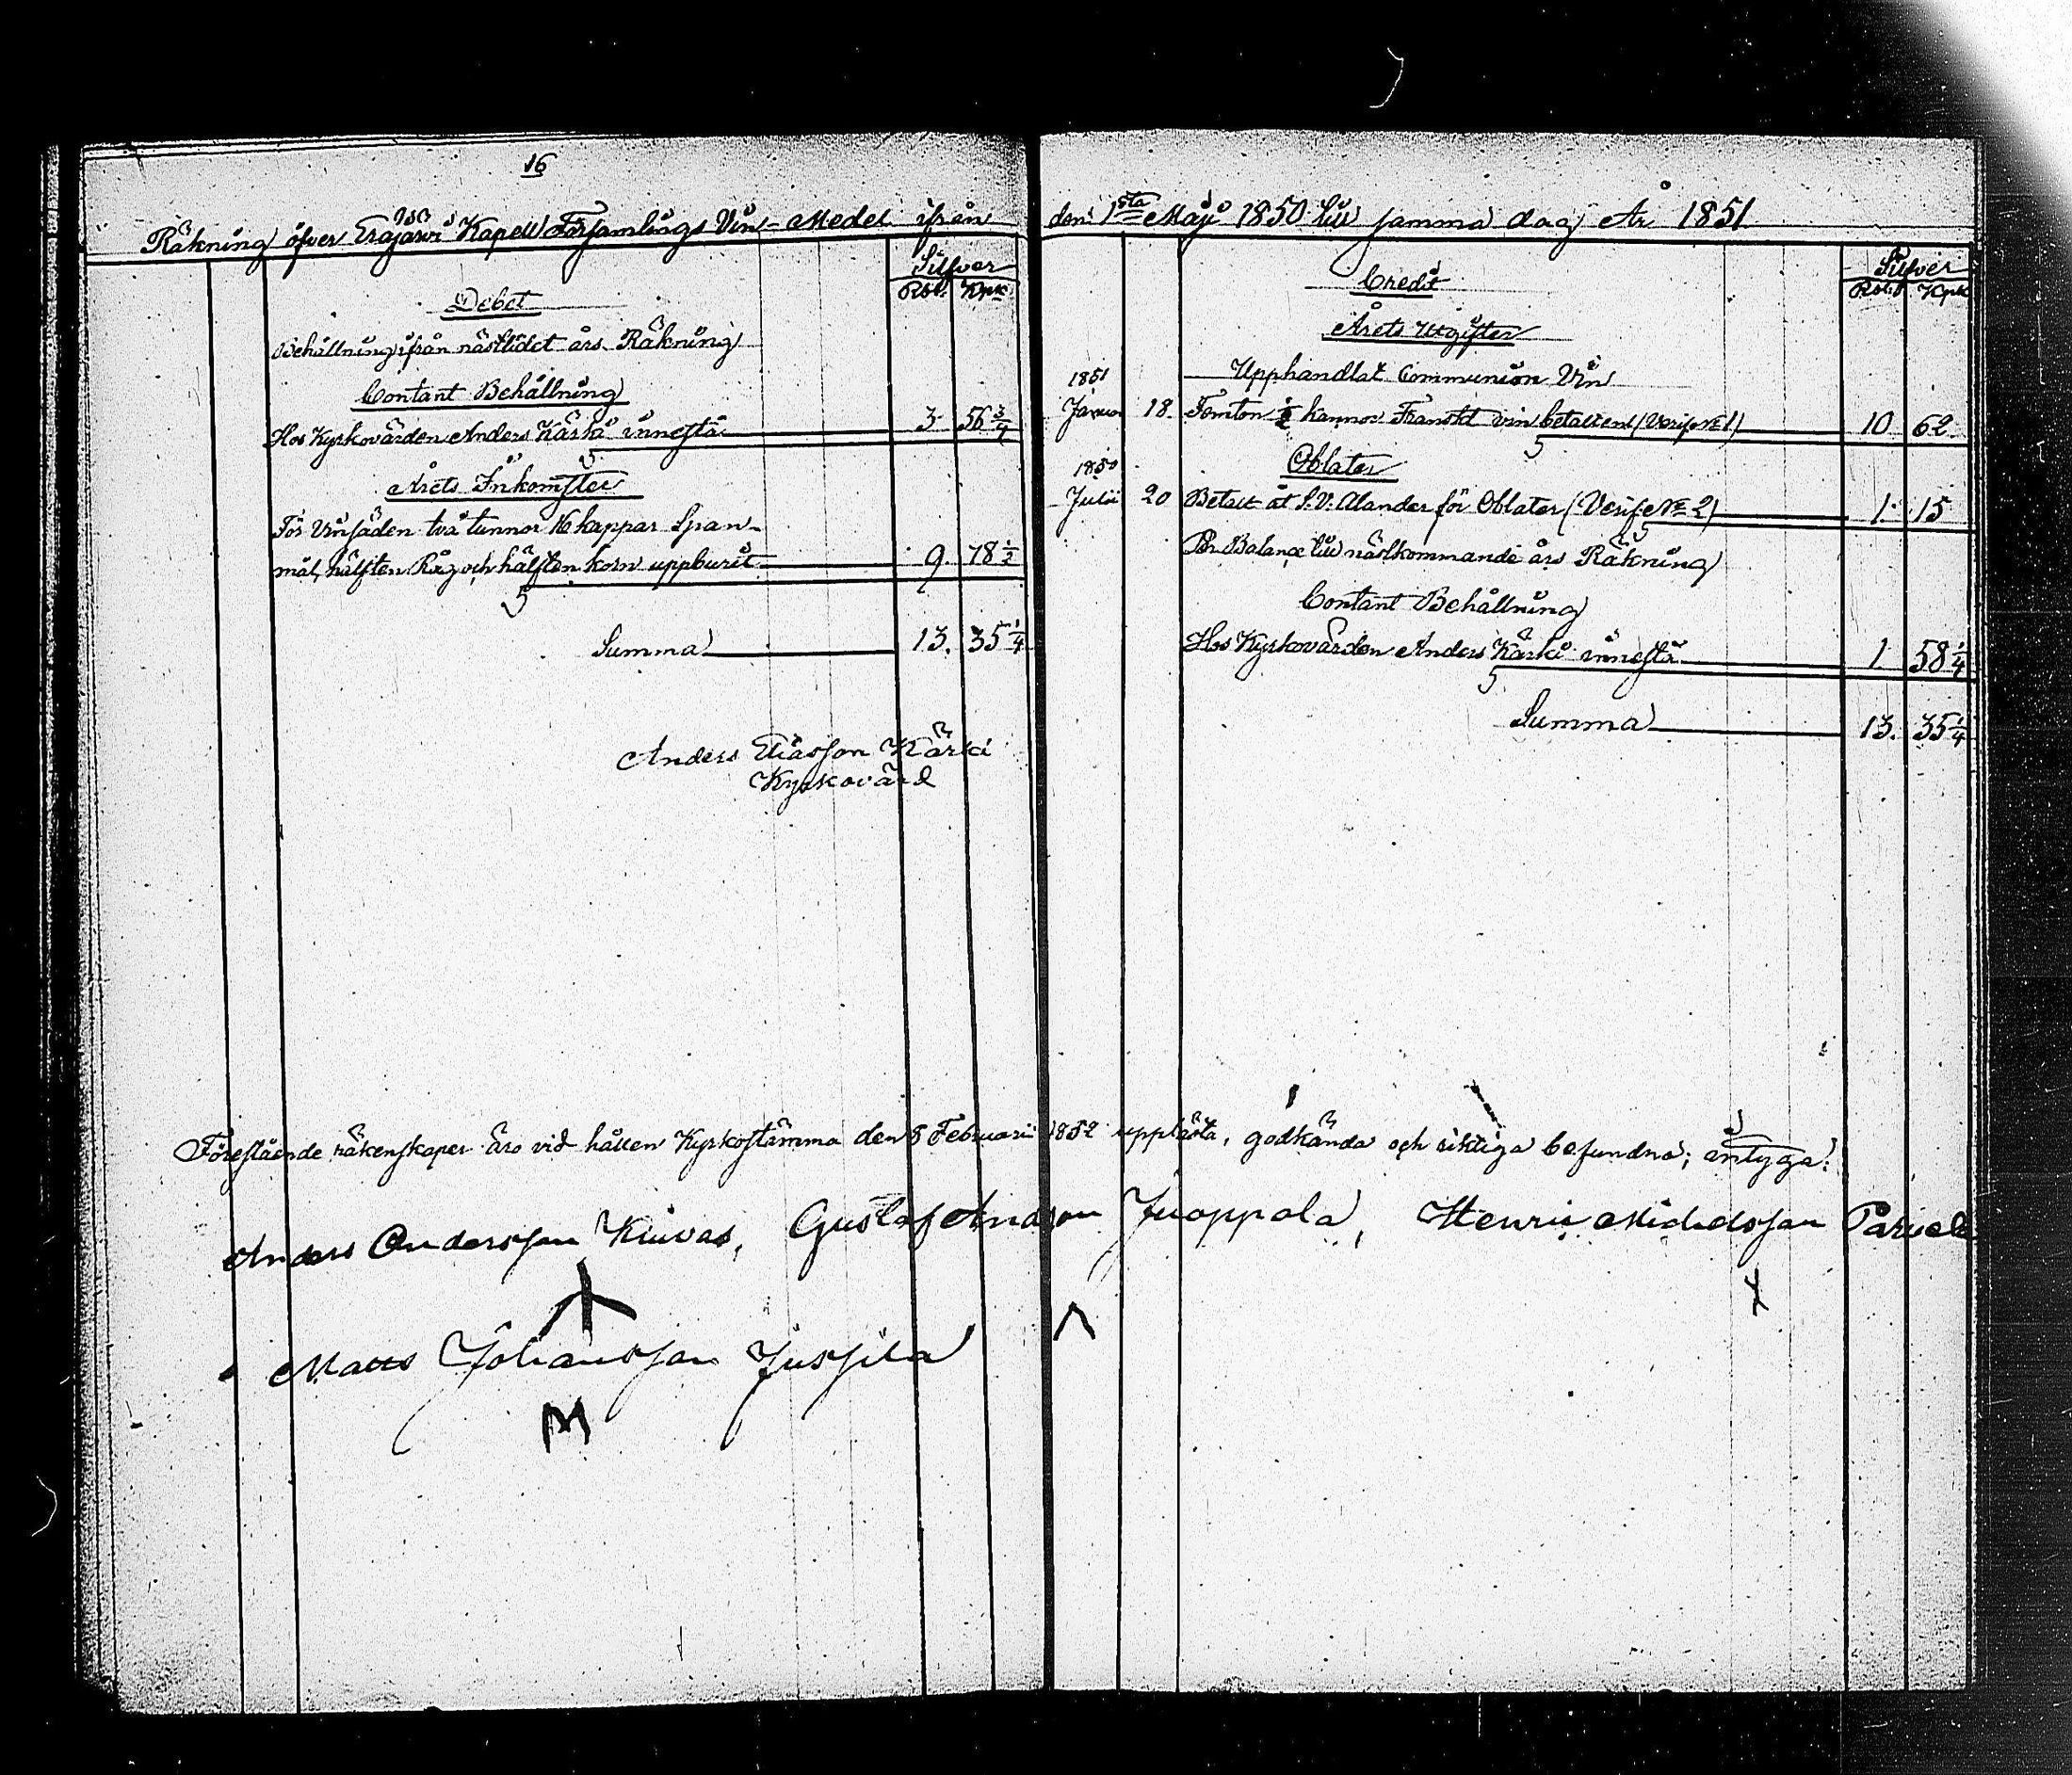 16
Räkning öfver Erajärvi Kapell Församlings Vin-Medel ifrån
Silfver
Rbl. Kpk
Debet
Behållning ifrån nästlidet års Räkning
Contant Behållning
Hos Kyrkovärden Anders Kärki innestå 3 56 3/4
Årets Inkomster
För Vinsäden två tunnor 16 kappar Span-
mål, hälften Råg och hälften korn uppburit 9. 78 1/2
Summa 13. 35 1/4
Anders Eliasson Kärki
Kyrkovärd
den 1sta Maji 1850 till samma dag År 1851
Silfver
Rbl. Kpk
Credit
Årets Utgifter
1851 Upphandlat Communion Vin
Januar 18. Femton kannor Franskt vin betalt enl (Verif. No 1) 10 62
1850 Oblater
Julii 20 Betalt åt S. V. Alander för Oblater (Verif. No 2) 1. 15
Per Balance till nästkommande års Räkning
Contant Behållning
Hos Kyrkovärden Anders Kärki innestå 1 58 1/4
Summa 13. 35 1/4
Föreståénde räkenskaper äro vid hållen Kyrkostämma den 8 Februarii 1852 upplästa, godkända och riktiga befundna; intyga:
Anders Andersson Gustaf Andsson Juoppala, Henric Michelsson
Matts Johansson Jussila
M